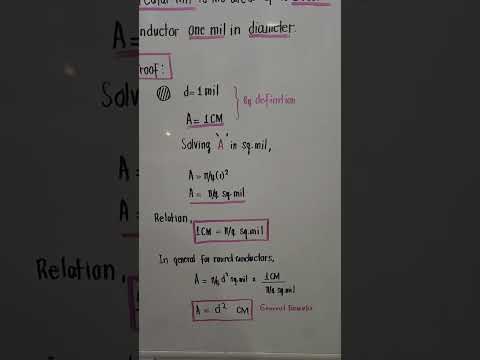 nductor one mil in diameter.
roof:
d = 1 mil
A = 1CM
By definition
Solving "A" in sq.mil,
A = π/4(1)²
A = π/4 sq.mil
Relation,
1CM = π/4 sq.mil
In general for round conductors,
A = π/4 d² sq.mil × 1CM / π/4 sq.mil
A = d² CM
General Formula
Solv
A =
A =
Relation,